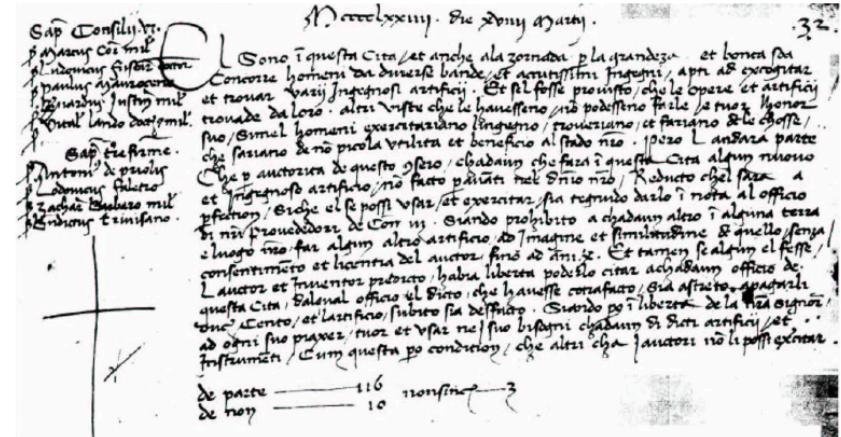 Mcccclxxiiii. die xviiii Martii.
.32.
Sap^t Consilii.
p Marcus Cor^o mil^s
p Ludovicus Fuscar^s doctor
p Paulus Maurocen^o
p Bernardus Justin^o mil^s
p Vital lando doct^r mil^s
Sap^t t're firme.
p Antoni^s de priolis
p Lodovicus faletro
p Zachar^s barbaro mil^s
p Endicus trivisano.
El Sono ī questa Cita, et anche ala zornada p la grandeza et bonta soa
Concorre homeni da diverse bande, et accutissimi Ingegni, apti ad excogitar
et trovar varij Ingegnosi artificij. Et sel fosse provisto, che le opere et artificij
trovade da loro. altri viste che le havesseno, nō podesseno farle, e tuor l honor
suo, Simel homeni exercitariano lingegno, troveriano, et fariano dele chosse,
che sariano de nō picola utilita et beneficio al stado nr̄o. Pero L andara parte
Che p auctorita de questo 9seio, chadaun che fara ī questa Cita algun nuovo
et Ingegnoso artificio, nō facto p avanti nel dn̄io nr̄o, Reducto chel sara a
pfection, Siche el se possi usar, et exercitar, sia tegnudo darlo ī nota al officio
di nr̄i provededori de Con un. Siando prohibito a chadaun altro ī alguna terra
e luogo nr̄o, far algun altro artificio, ad Imagine et similitudine di quello, senza
consentimēto et licentia del auctor, fino ad ani .x. Et tamen se algun el fesse,
L auctor et Inventor predicto, habia liberta poderlo citar a chadaun officio de
questa Cita, dal qual officio el dicto, che havesse cōtrafacto, Sia astreto a pagarli
duc^i Cento, et l artificio, subito sia desfacto. Siando po ī liberta de la nr̄a Signor^a
ad ogni suo piaxer, tuor et usar nei suo bisogni chadaun di dicti artificij, et
Instrumēti, Cum questa po condition, che altri cha I auctori nō li possi excitar.
de parte — 116
de non — 10
non sinc^e — 3